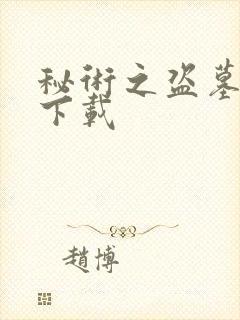 秘術之盜墓
下載
趙博